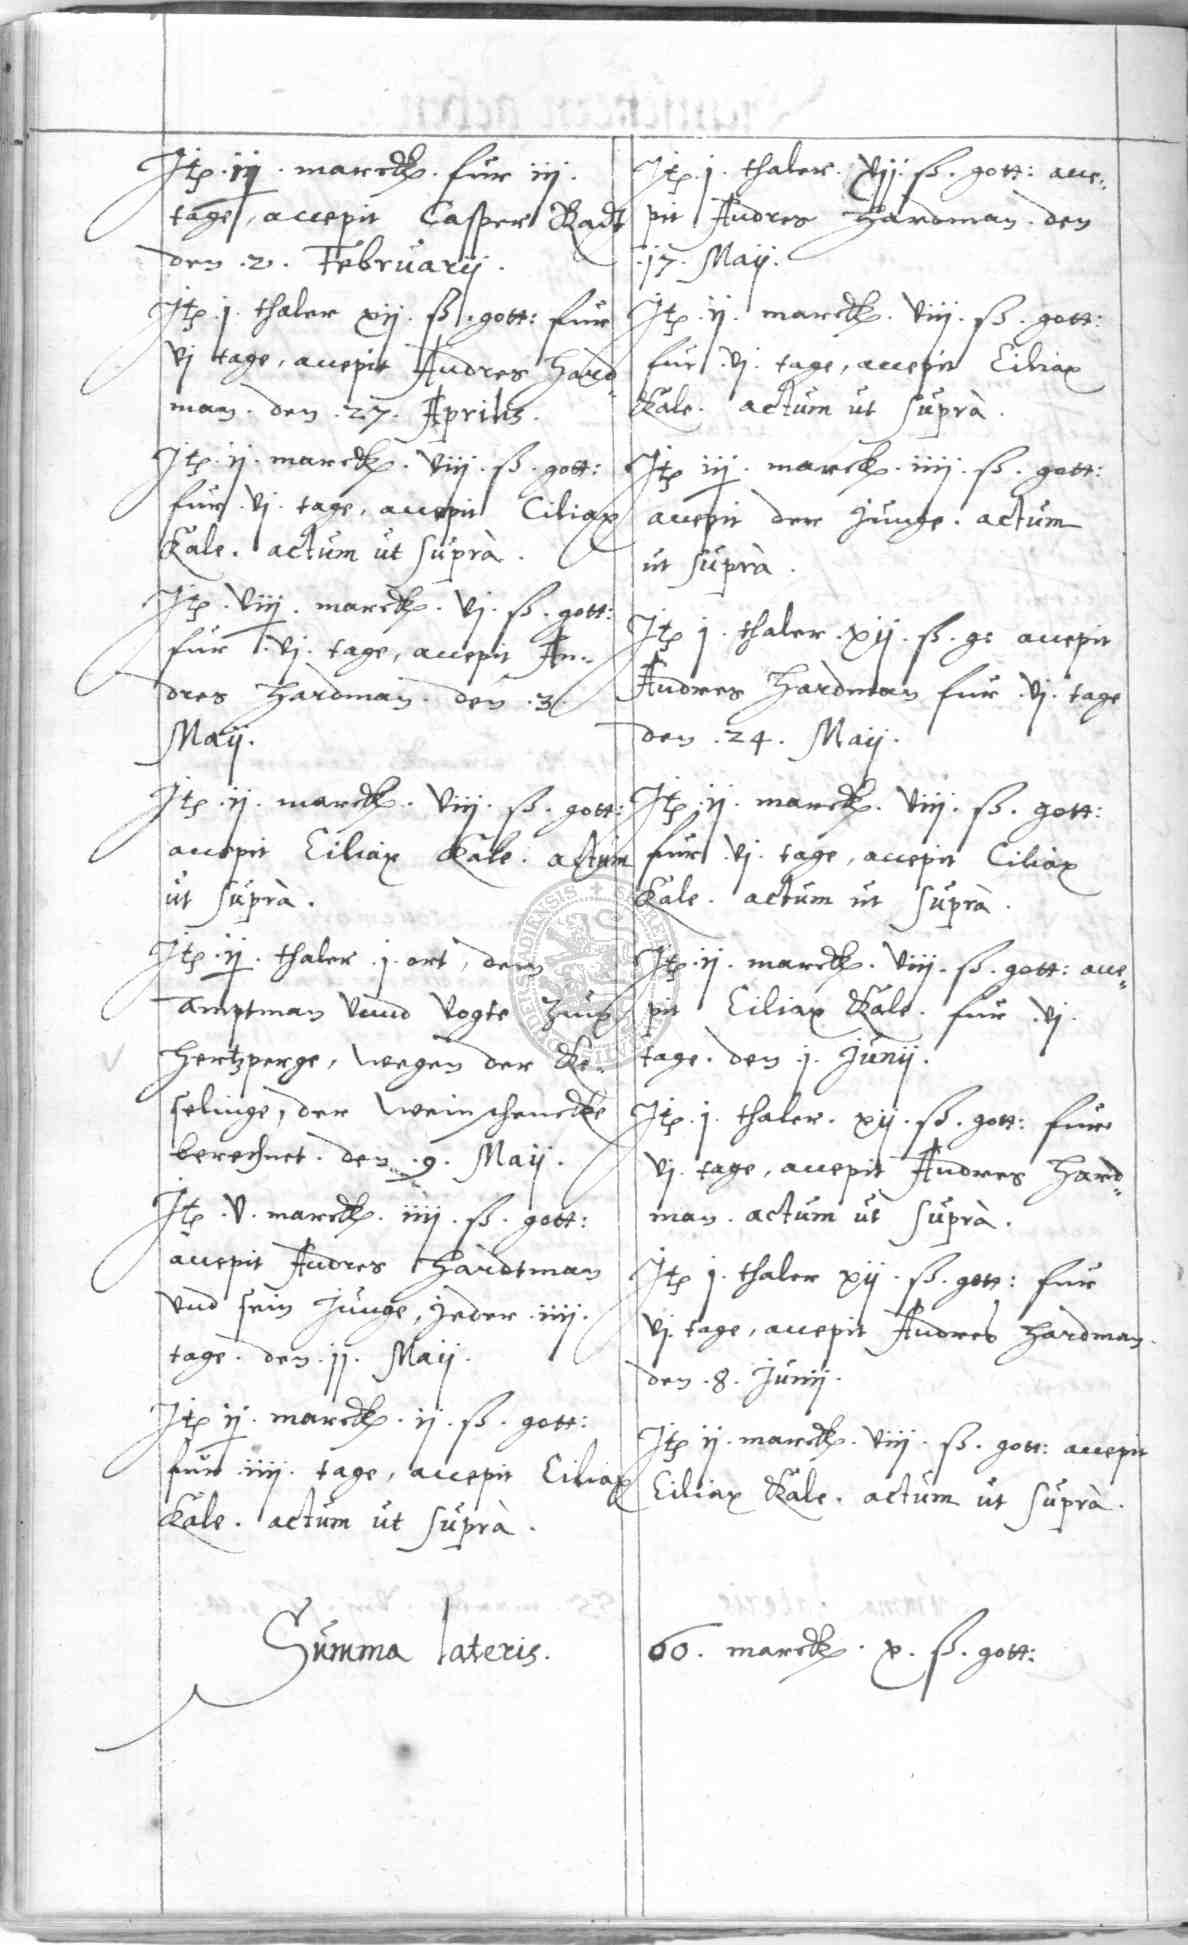 Itp. iij. marck. fur iij.
tage, accepit Casper Radt
den .2. Februarij.
Itp. j. thaler xij. ß. gott: fur
vj tage, accepit Andres Hard=
man. den .27. Aprilis.
Itp. ij. marck. viij. ß. gott:
fur .vj. tage, accepit Ciliax
Kale. actum ut suprà.
Itp. viij. marck. vj. ß. gott:
fur .vj. tage, accepit An=
dres Hardman. den .3.
Maij.
Itp. ij. marck. viij. ß. gott:
accepit Ciliax Kale. actum
ut suprà.
Itp. ij. thaler .j. ort, dem
Amptman vnnd Vogte zum
Hertzperge, wegen der Ke=
selinge, der weinschencke
berechnet. den .9. Maij.
Itp. v. marck. iiij. ß. gott:
accepit Andres Hardtman
vnd sein Junge, Jeder .iiij.
tage. den .11. Maij.
Itp ij. marck. ij. ß. gott:
fur .iiij. tage, accepit Ciliax
Kale. actum ut suprà.
Summa lateris.
Itp. j. thaler. xij. ß. gott: acce=
pit Andres Hardman. den
.17. Maij.
Itp. ij. marck. viij. ß. gott:
fur .vj. tage, accepit Ciliax
Kale. actum ut suprà.
Itp iij. marck. iiij. ß. gott:
accepit der Junge. actum
ut suprà.
Itp j. thaler .xij. ß. g: accepit
Andres Hardman fur .vj. tage
den .24. Maij.
Itp. ij. marck. viij. ß. gott:
fur .vj. tage, accepit Ciliax
Kale. actum ut suprà.
Itp. ij. marck. viij. ß. gott: acce=
pit Ciliax Kale. fur .vj.
tage. den .1. Junij.
Itp. j. thaler. xij. ß. gott: fur
vj. tage, accepit Andres Hard=
man. actum ut suprà.
Itp j. thaler xij. ß. gott: fur
vj. tage, accepit Andres Hardman.
den .8. Junij.
Itp ij. marck. viij. ß. gott: accepit
Ciliax Kale. actum ut suprà.
60. marck. x. ß. gott: